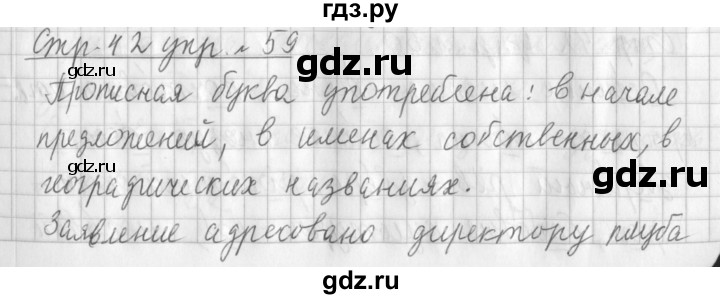 гдз.ру
Стр. 42 упр. 59
gdz.ru
gdz.ru
gdz.ru
Прописная буква употреблена: в начале
предложений, в именах собственных, в
географических названиях.
gdz.ru
gdz.ru
Заявление адресовано директору клуба
gdz.ru
gdz.ru